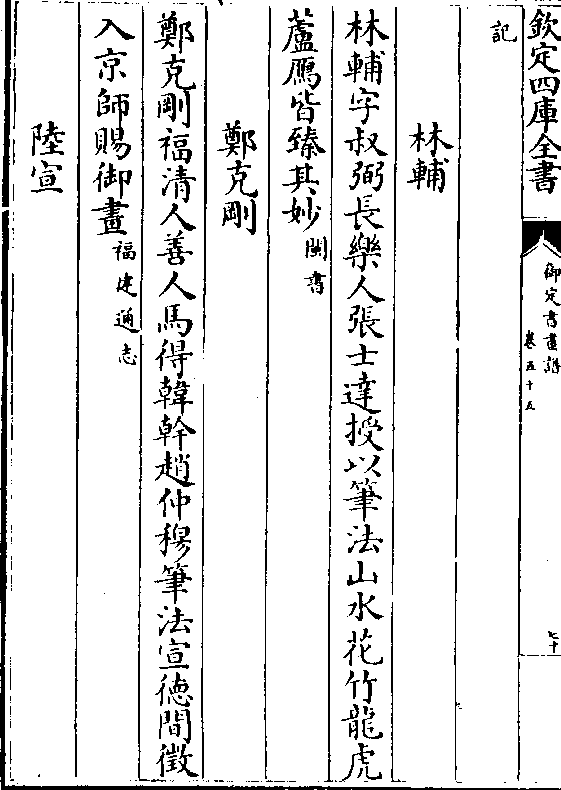 欽定四庫全書
御定書畫譜
卷五十五
七十
記
林輔
林輔字叔弼長樂人張士達授以筆法山水花竹龍虎
蘆鴈皆臻其妙閩書
鄭克剛
鄭克剛福清人善人馬得韓幹趙仲穆筆法宣德間徵
入京師賜御畫福建通志
陸宣